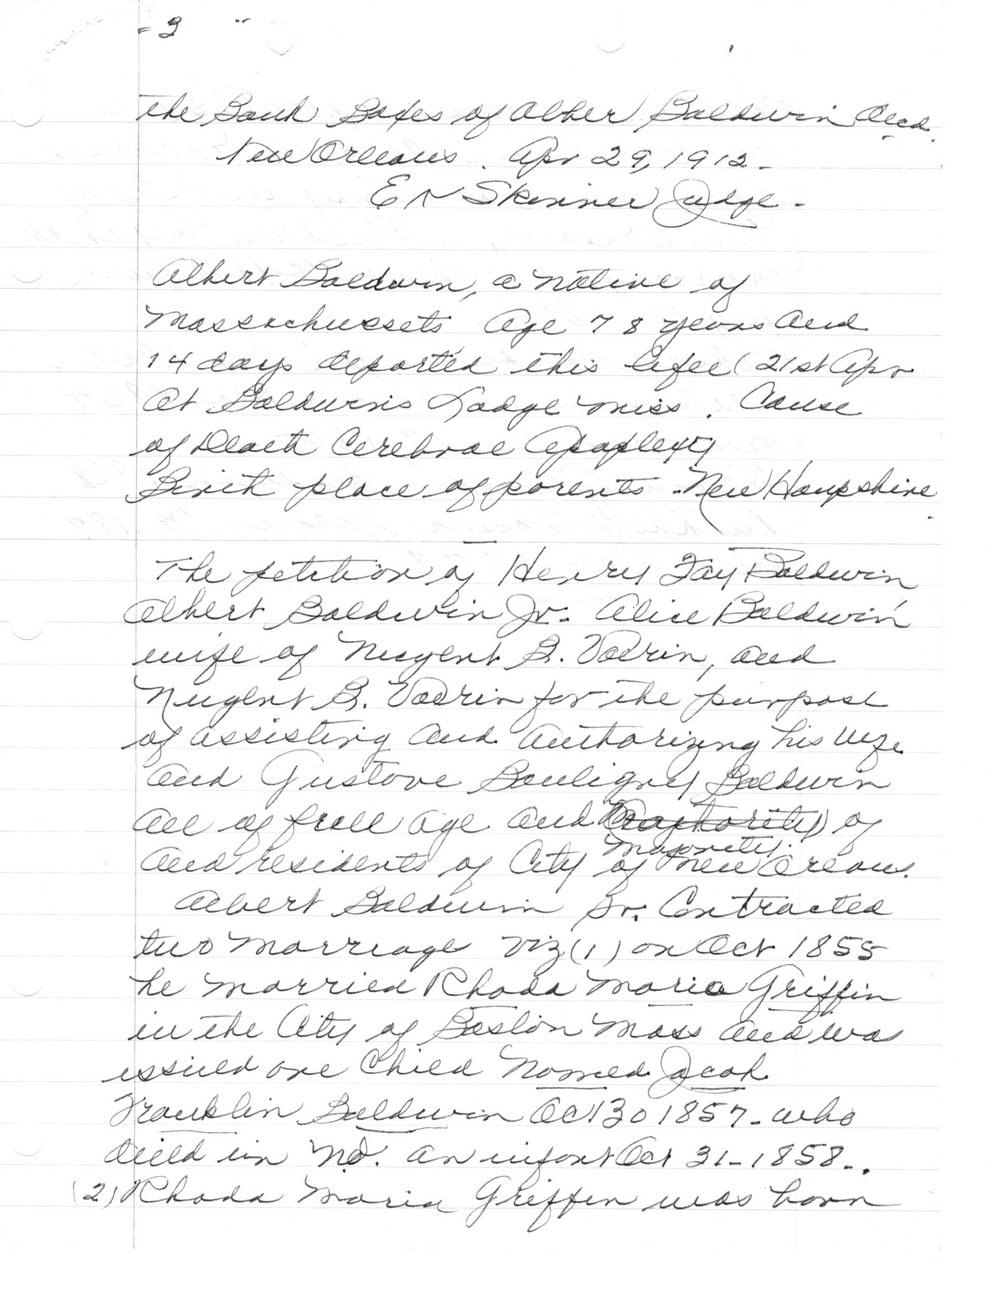 - 3 "
The Bank Boxes of Alber Baldwin Decd.
New Orleans. Apr 29, 1912 -
E N Skinner Judge -
Albert Baldwin, a native of
Massachussets Age 78 years and
14 days departed this lifee (21st Apr
At Baldwins Lodge miss. Cause
of Death Cerebral Apoplexy
Birth place of parents - New Hampshire.
The petition of Henry Fay Baldwin,
Albert Baldwin Jr. Alice Baldwin
wife of Nugent B. Vairin, and
Nugent B. Vairin for the purpose
of assisting and authorizing his wife
and Gustave Bouligny Baldwin
all of full age and of
majority.
and residents of City of New Orleans.
Albert Baldwin Sr. Contracted
two marriage viz (1) on Oct 1855
he married Rhoda Maria Griffin
in the City of Boston Mass and was
issued one Child Named Jacob
Franklin Baldwin Oct 30 1857 - who
died in N.O. an infant Oct 31 - 1858 -.
(2) Rhoda Maria Griffin was born